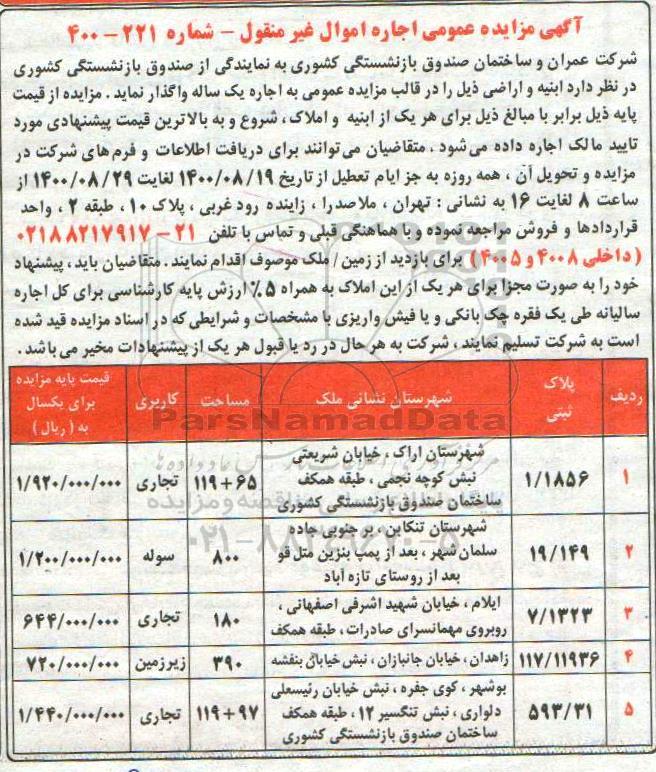 آگهی مزایده عمومی اجاره اموال غیر منقول - شماره ۲۲۱-۴۰۰
شرکت عمران و ساختمان صندوق بازنشستگی کشوری به نمایندگی از صندوق بازنشستگی کشوری
در نظر دارد ابنیه و اراضی ذیل را در قالب مزایده عمومی به اجاره یک ساله واگذار نماید . مزایده از قیمت
پایه ذیل برابر با مبالغ ذیل برای هر یک از ابنیه و املاک ، شروع و به بالاترین قیمت پیشنهادی مورد
تایید مالک اجاره داده می شود ، متقاضیان می توانند برای دریافت اطلاعات و فرم های شرکت در
مزایده و تحویل آن ، همه روزه به جز ایام تعطیل از تاریخ ۱۴۰۰/۰۸/۱۹ لغایت ۱۴۰۰/۰۸/۲۹ از
ساعت ۸ لغایت ۱۶ به نشانی : تهران ، ملاصدرا ، زاینده رود غربی ، پلاک ۱۰ ، طبقه ۲ ، واحد
قراردادها و فروش مراجعه نموده و با هماهنگی قبلی و تماس با تلفن ۲۱-۰۲۱۸۸۲۱۷۹۱۷
( داخلی ۴۰۰۸ و ۴۰۰۵ ) برای بازدید از زمین / ملک موصوف اقدام نمایند . متقاضیان باید ، پیشنهاد
خود را به صورت مجزا برای هر یک از این املاک به همراه ۵٪ ارزش پایه کارشناسی برای کل اجاره
سالیانه طی یک فقره چک بانکی و یا فیش واریزی با مشخصات و شرایطی که در اسناد مزایده قید شده
است به شرکت تسلیم نمایند ، شرکت به هر حال در رد یا قبول هر یک از پیشنهادات مخیر می باشد .
ردیف پلاک ثبتی شهرستان نشانی ملک مساحت کاربری قیمت پایه مزایده برای یکسال به ( ریال )
۱ ۱/۱۸۵۶ شهرستان اراک ، خیابان شریعتی
نبش کوچه نجمی ، طبقه همکف
ساختمان صندوق بازنشستگی کشوری ۱۱۹+۶۵ تجاری ۱/۹۲۰/۰۰۰/۰۰۰
۲ ۱۹/۱۴۹ شهرستان تنکابن ، بر جنوبی جاده
سلمان شهر ، بعد از پمپ بنزین متل قو
بعد از روستای تازه آباد ۸۰۰ سوله ۱/۲۰۰/۰۰۰/۰۰۰
۳ ۷/۱۳۲۳ ایلام ، خیابان شهید اشرفی اصفهانی ،
روبروی مهمانسرای صادرات ، طبقه همکف ۱۸۰ تجاری ۶۴۴/۰۰۰/۰۰۰
۴ ۱۱۷/۱۱۹۳۶ زاهدان ، خیابان جانبازان ، نبش خیابان بنفشه ۳۹۰ زیرزمین ۷۲۰/۰۰۰/۰۰۰
۵ ۵۹۳/۳۱ بوشهر ، کوی جفره ، نبش خیابان رئیسعلی
دلواری ، نبش تنگسیر ۱۲ ، طبقه همکف
ساختمان صندوق بازنشستگی کشوری ۱۱۹+۹۷ تجاری ۱/۴۴۰/۰۰۰/۰۰۰
ParsNamadData